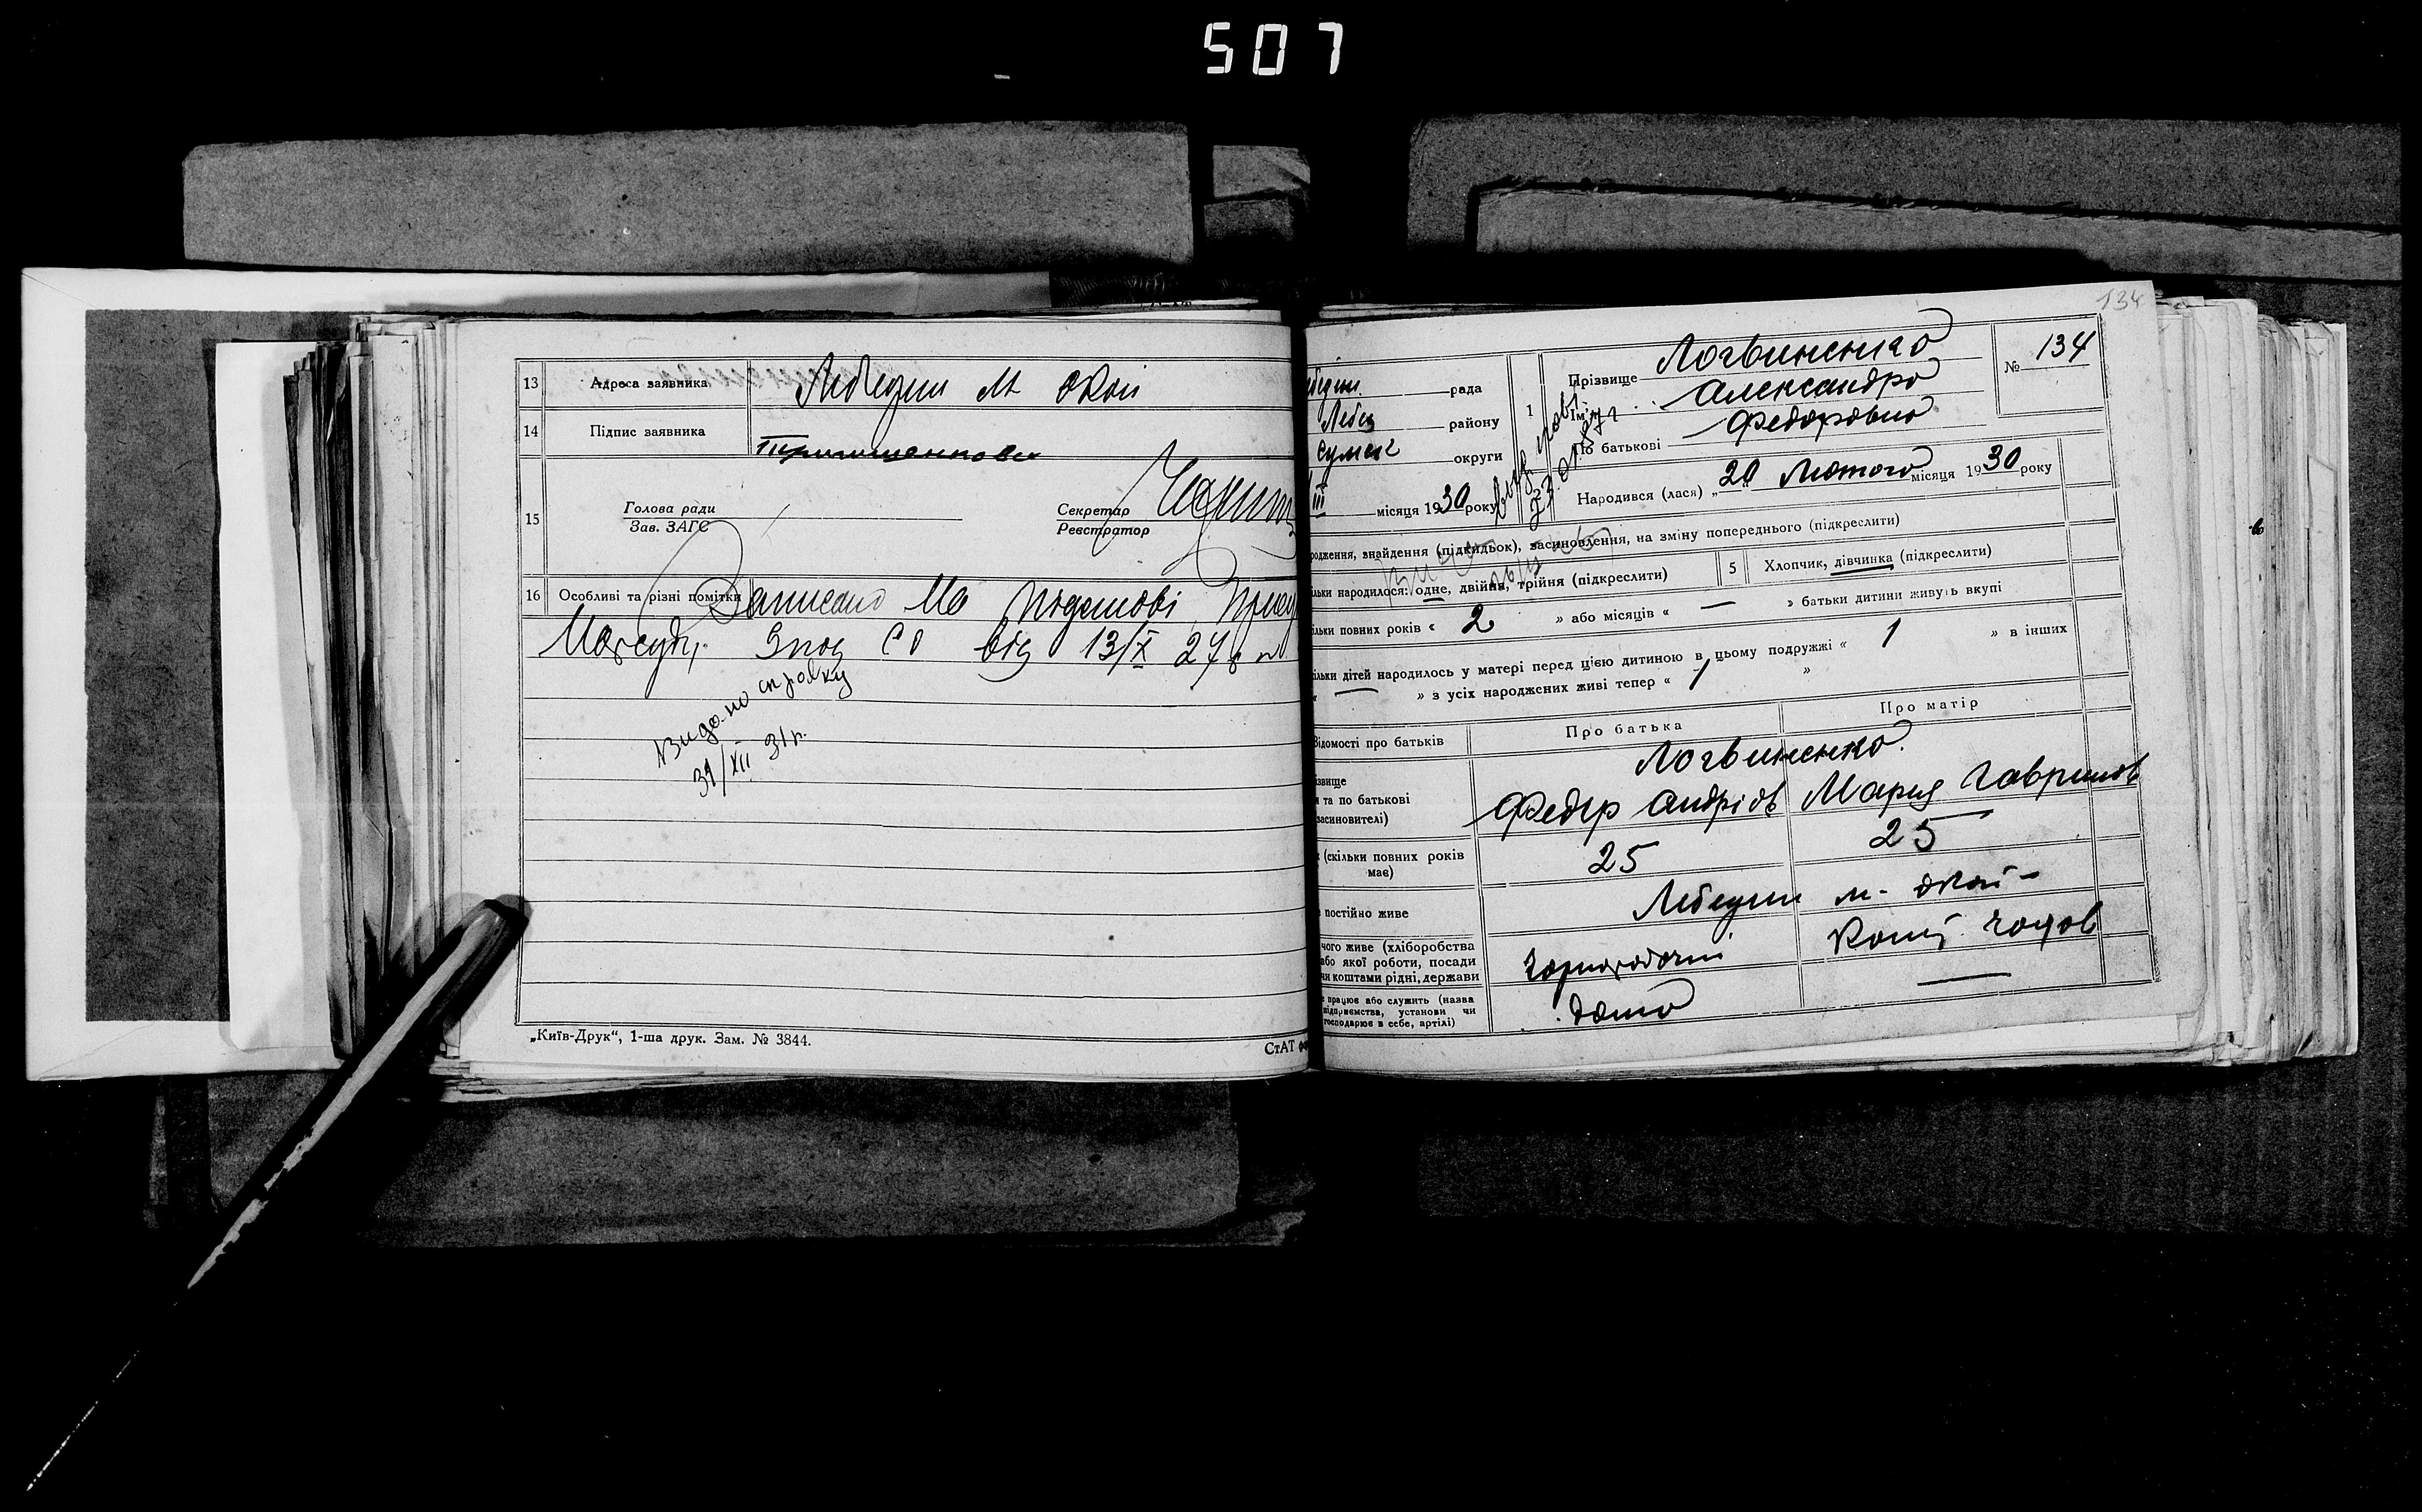 507
13 Адреса заявника Лебедин м. окол
14 Підпис заявника
15 Голова ради
Зав. ЗАГС
Секретар
Реєстратор
16 Особливі та різні помітки Записано на підставі
від 13/X 27 р
Видано справку
31/XII 31 р.
„Київ-Друк“, 1-ша друк. Зам. № 3844.
СтАТ
134
рада
Лебед району
Сумськ округи
III місяця 1930 року
1
Прізвище Логвиненко
Ім'я Александра
По батькові Федоровна
№ 134
Народився (лася) „20“ Лютого місяця 1930 року
родження, знайдення (підкидьок), всиновлення, на зміну попереднього (підкреслити)
льки народилося: одне, двійня, трійня (підкреслити)
5 Хлопчик, дівчинка (підкреслити)
ільки повних років « 2 » або місяців « — » батьки дитини живуть вкупі
ільки дітей народилось у матері перед цією дитиною в цьому подружжі « 1 » в інших
« — » з усіх народжених живі тепер « 1 »
Відомості про батьків
Про батька
Про матір
звище
та по батькові
засиновителі)
Логвиненко
Федір Андріїв
Мария Гаврилов
(скільки повних років має)
25
25
постійно живе
Лебедин м. окол
чого живе (хліборобства
або якої роботи, посади
чи коштами рідні, держави
Чорноробочий
Кошт. чолов
працює або служить (назва
підприємства, установи чи
господарює в себе, артілі)
дома
—